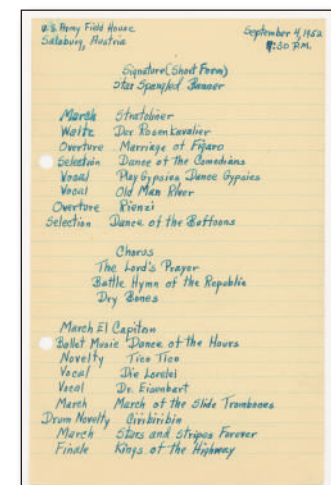 U.S. Army Field House September 4, 1952
Salzburg, Austria 8:30 P.M.
Signature (Short Form)
Star Spangled Banner
March Stratoliner
Waltz Der Rosenkavalier
Overture Marriage of Figaro
Selection Dance of the Comedians
Vocal Play Gypsies Dance Gypsies
Vocal Old Man River
Overture Rienzi
Selection Dance of the Buffoons
Chorus
The Lord's Prayer
Battle Hymn of the Republic
Dry Bones
March El Capitan
Ballet Music Dance of the Hours
Novelty Tico Tico
Vocal Die Lorelei
Vocal Dr. Eisenbart
March March of the Slide Trombones
Drum Novelty Ciribiribin
March Stars and Stripes Forever
Finale Kings of the Highway